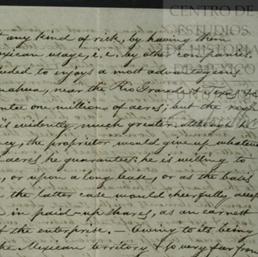 CENTRO DE
ESTUDIOS
DE HISTORIA
DE MÉXICO
any kind of risk, by having them
Mexican usage, i. e. by other
to enjoy a most advantageous
near the Rio Grande
one millions of acres; but the
is evidently much greater, although
the proprietor would give up whatever
acres he guarantees: he is willing to
or upon a long lease, or as the basis
the latter case would cheerfully accept
in paid-up shares, as an earnest
of the enterprise. — Owing to its being
the Mexican territory & so very far from